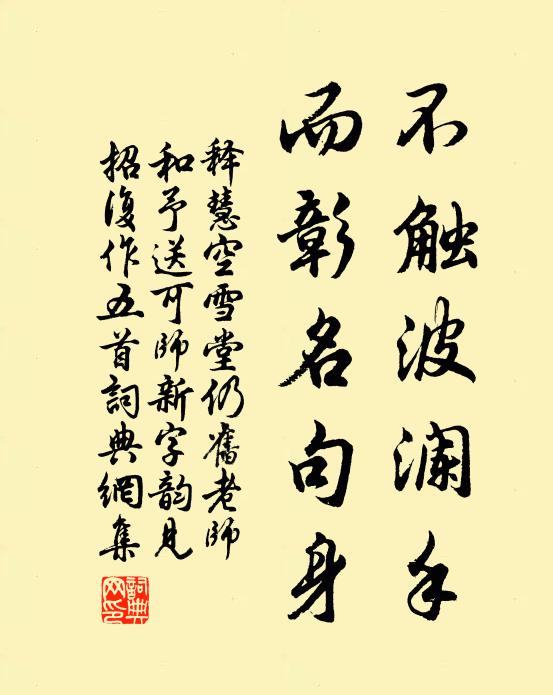 不触波澜手
而彰名句身
释慧空雪堂仍舊老师
和予送可师新字韵见
招復作五首詞典網集
詞典
网印